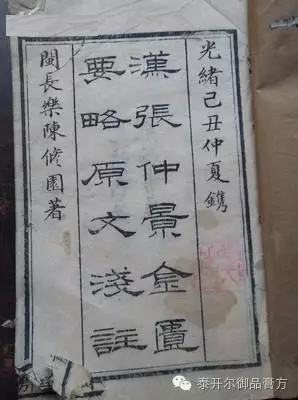 光緒己丑仲夏鐫
漢張仲景金匱
要略原文淺註
閩長樂陳修園著
泰开尔御品膏方